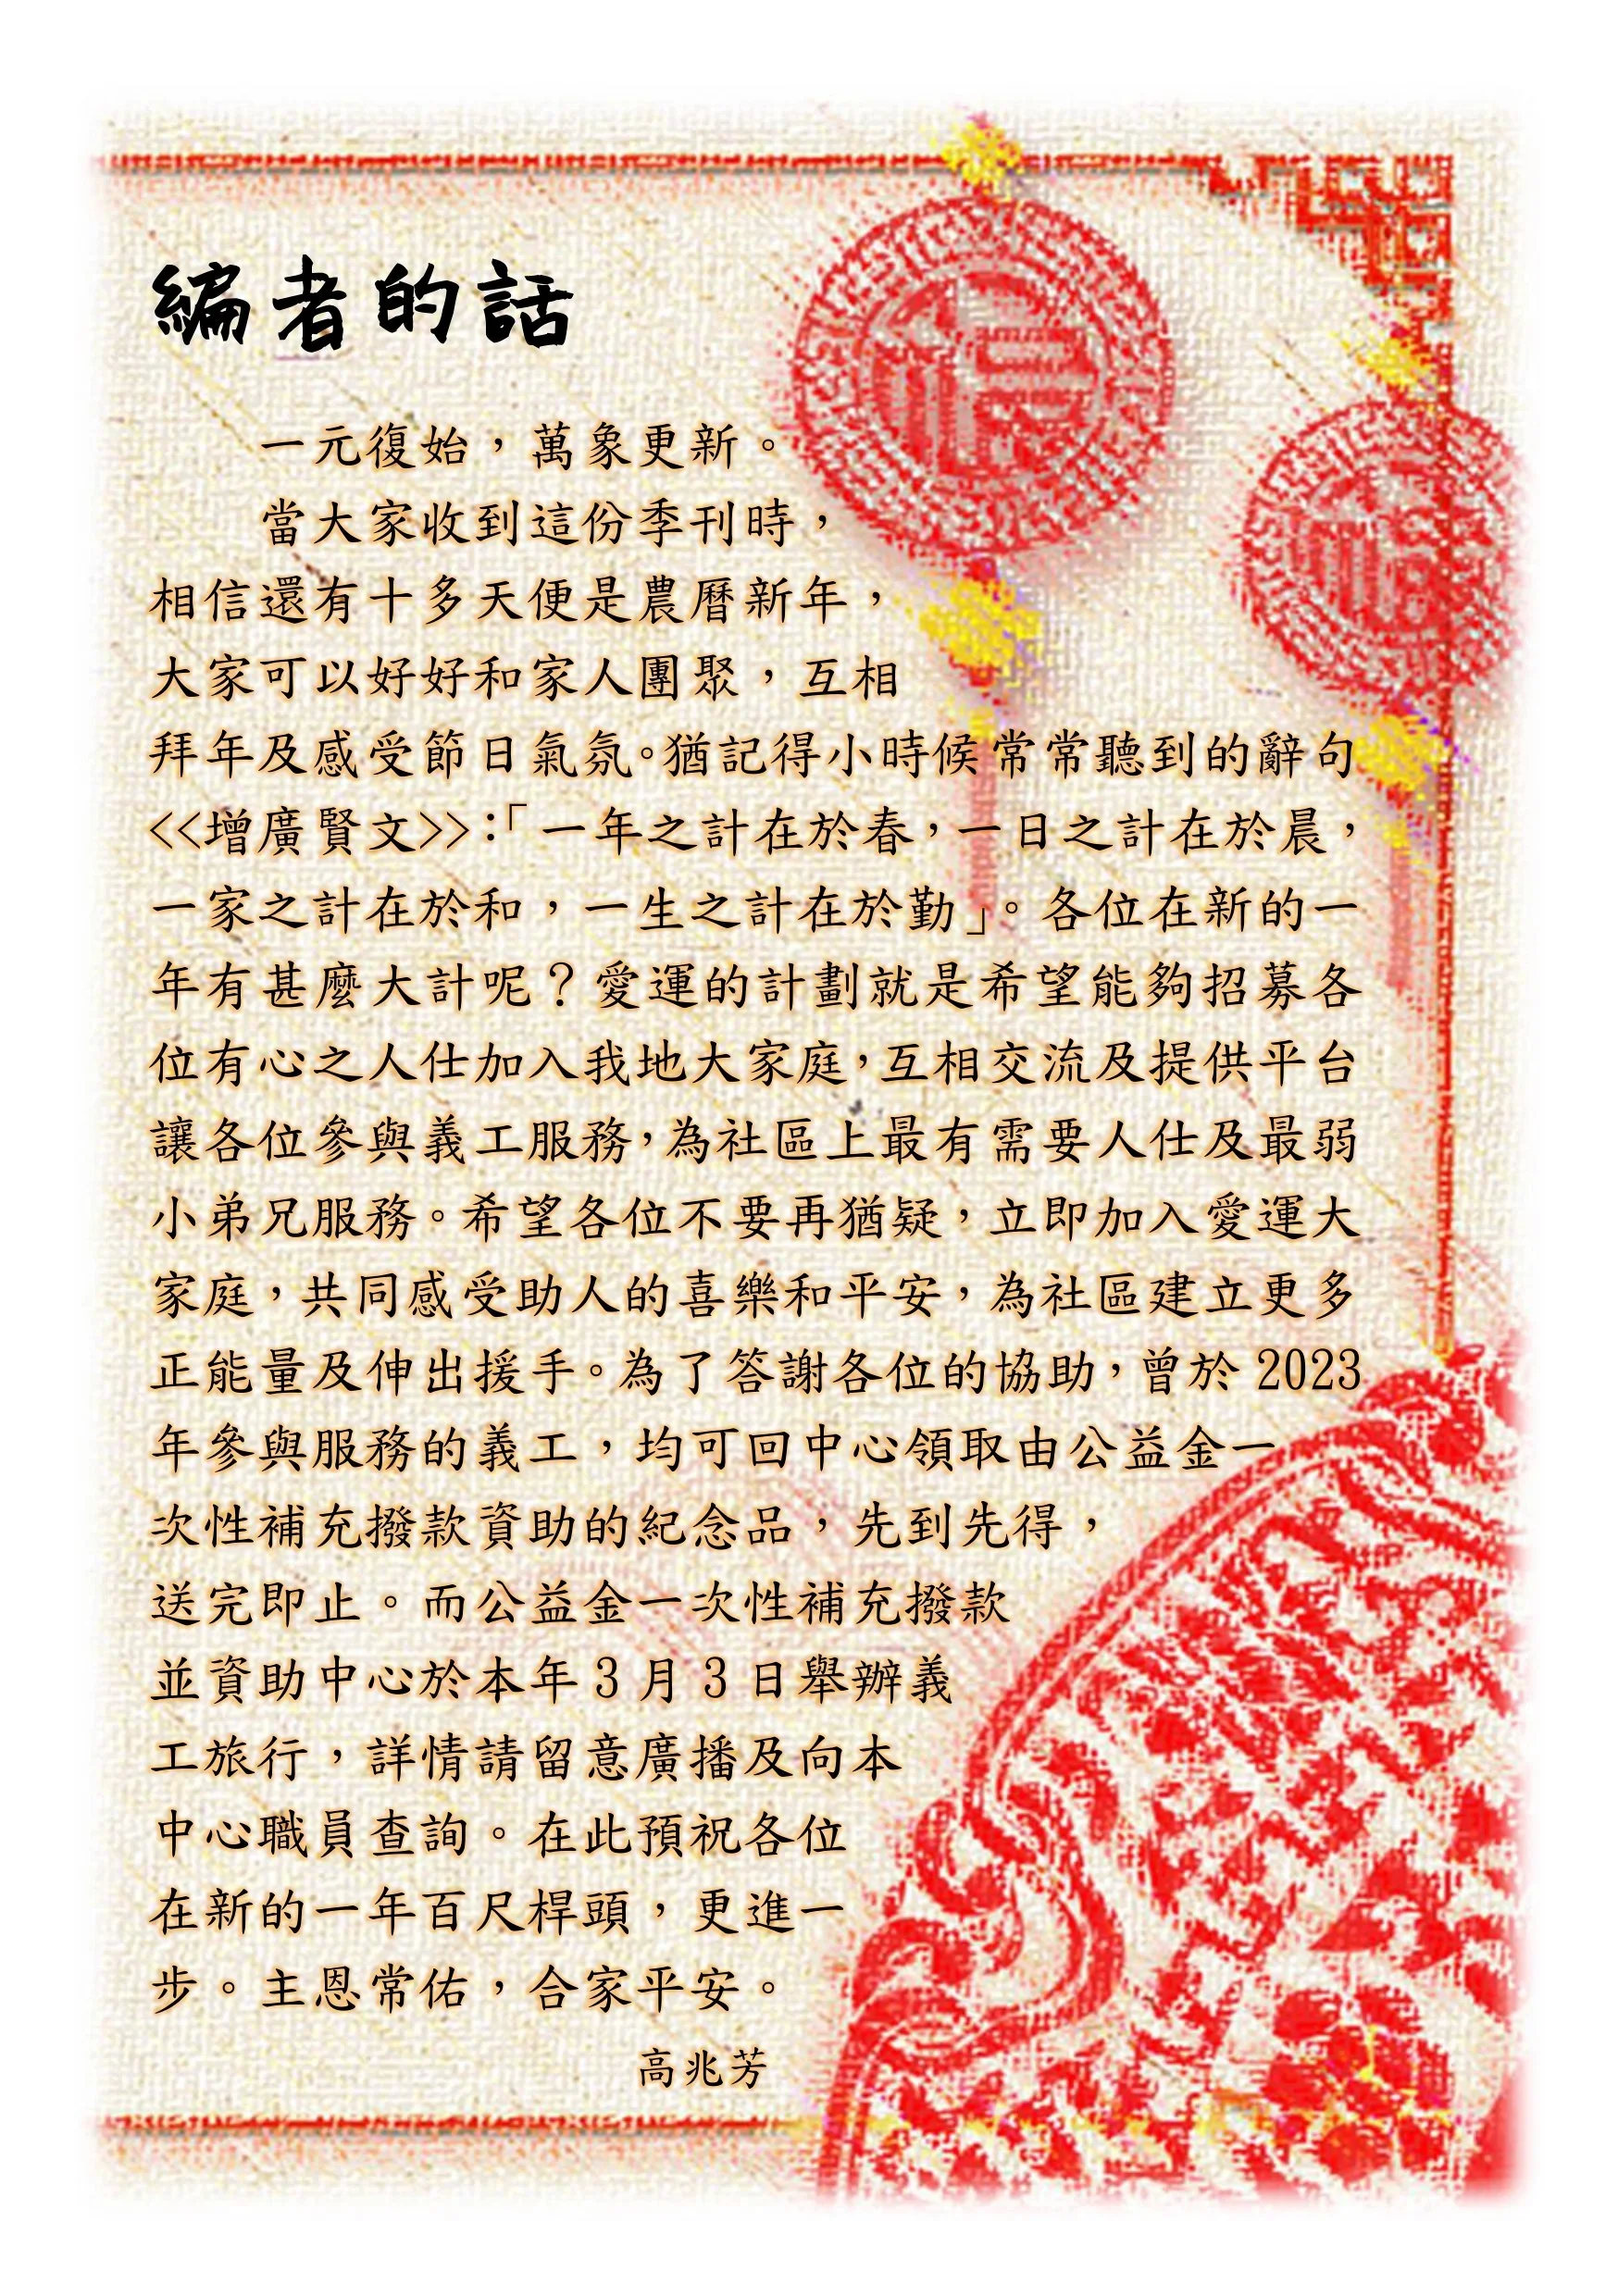 編者的話
一元復始，萬象更新。
當大家收到這份季刊時，
相信還有十多天便是農曆新年，
大家可以好好和家人團聚，互相
拜年及感受節日氣氛。猶記得小時候常常聽到的辭句
<<增廣賢文>>：「一年之計在於春，一日之計在於晨，
一家之計在於和，一生之計在於勤」。各位在新的一
年有甚麼大計呢？愛運的計劃就是希望能夠招募各
位有心之人仕加入我地大家庭，互相交流及提供平台
讓各位參與義工服務，為社區上最有需要人仕及最弱
小弟兄服務。希望各位不要再猶疑，立即加入愛運大
家庭，共同感受助人的喜樂和平安，為社區建立更多
正能量及伸出援手。為了答謝各位的協助，曾於 2023
年參與服務的義工，均可回中心領取由公益金一
次性補充撥款資助的紀念品，先到先得，
送完即止。而公益金一次性補充撥款
並資助中心於本年 3 月 3 日舉辦義
工旅行，詳情請留意廣播及向本
中心職員查詢。在此預祝各位
在新的一年百尺桿頭，更進一
步。主恩常佑，合家平安。
高兆芳